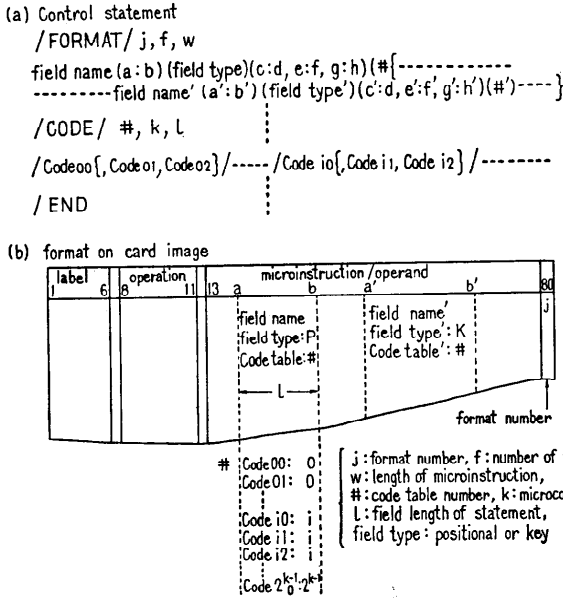 (a) Control statement
/FORMAT/ j, f, w
field name (a:b) (field type)(c:d, e:f, g:h)(#{-------------
---------field name' (a':b') (field type')(c':d', e':f', g':h')(#')----}
/CODE/ #, k, l
/Code00{,Code01,Code02}/-----/Code i0{,Code i1, Code i2}/--------
/END
(b) format on card image
label operation microinstruction/operand
1 6 8 11 13 a b a' b' 80
j
field name field name'
field type: P field type': K
Code table: # Code table': #
l
format number
# Code 00: 0
Code 01: 0
Code i0: i
Code i1: i
Code i2: i
Code 2^k-1 0: 2^k-1
j: format number, f: number of
w: length of microinstruction,
#: code table number, k: microco
l: field length of statement,
field type: positional or key